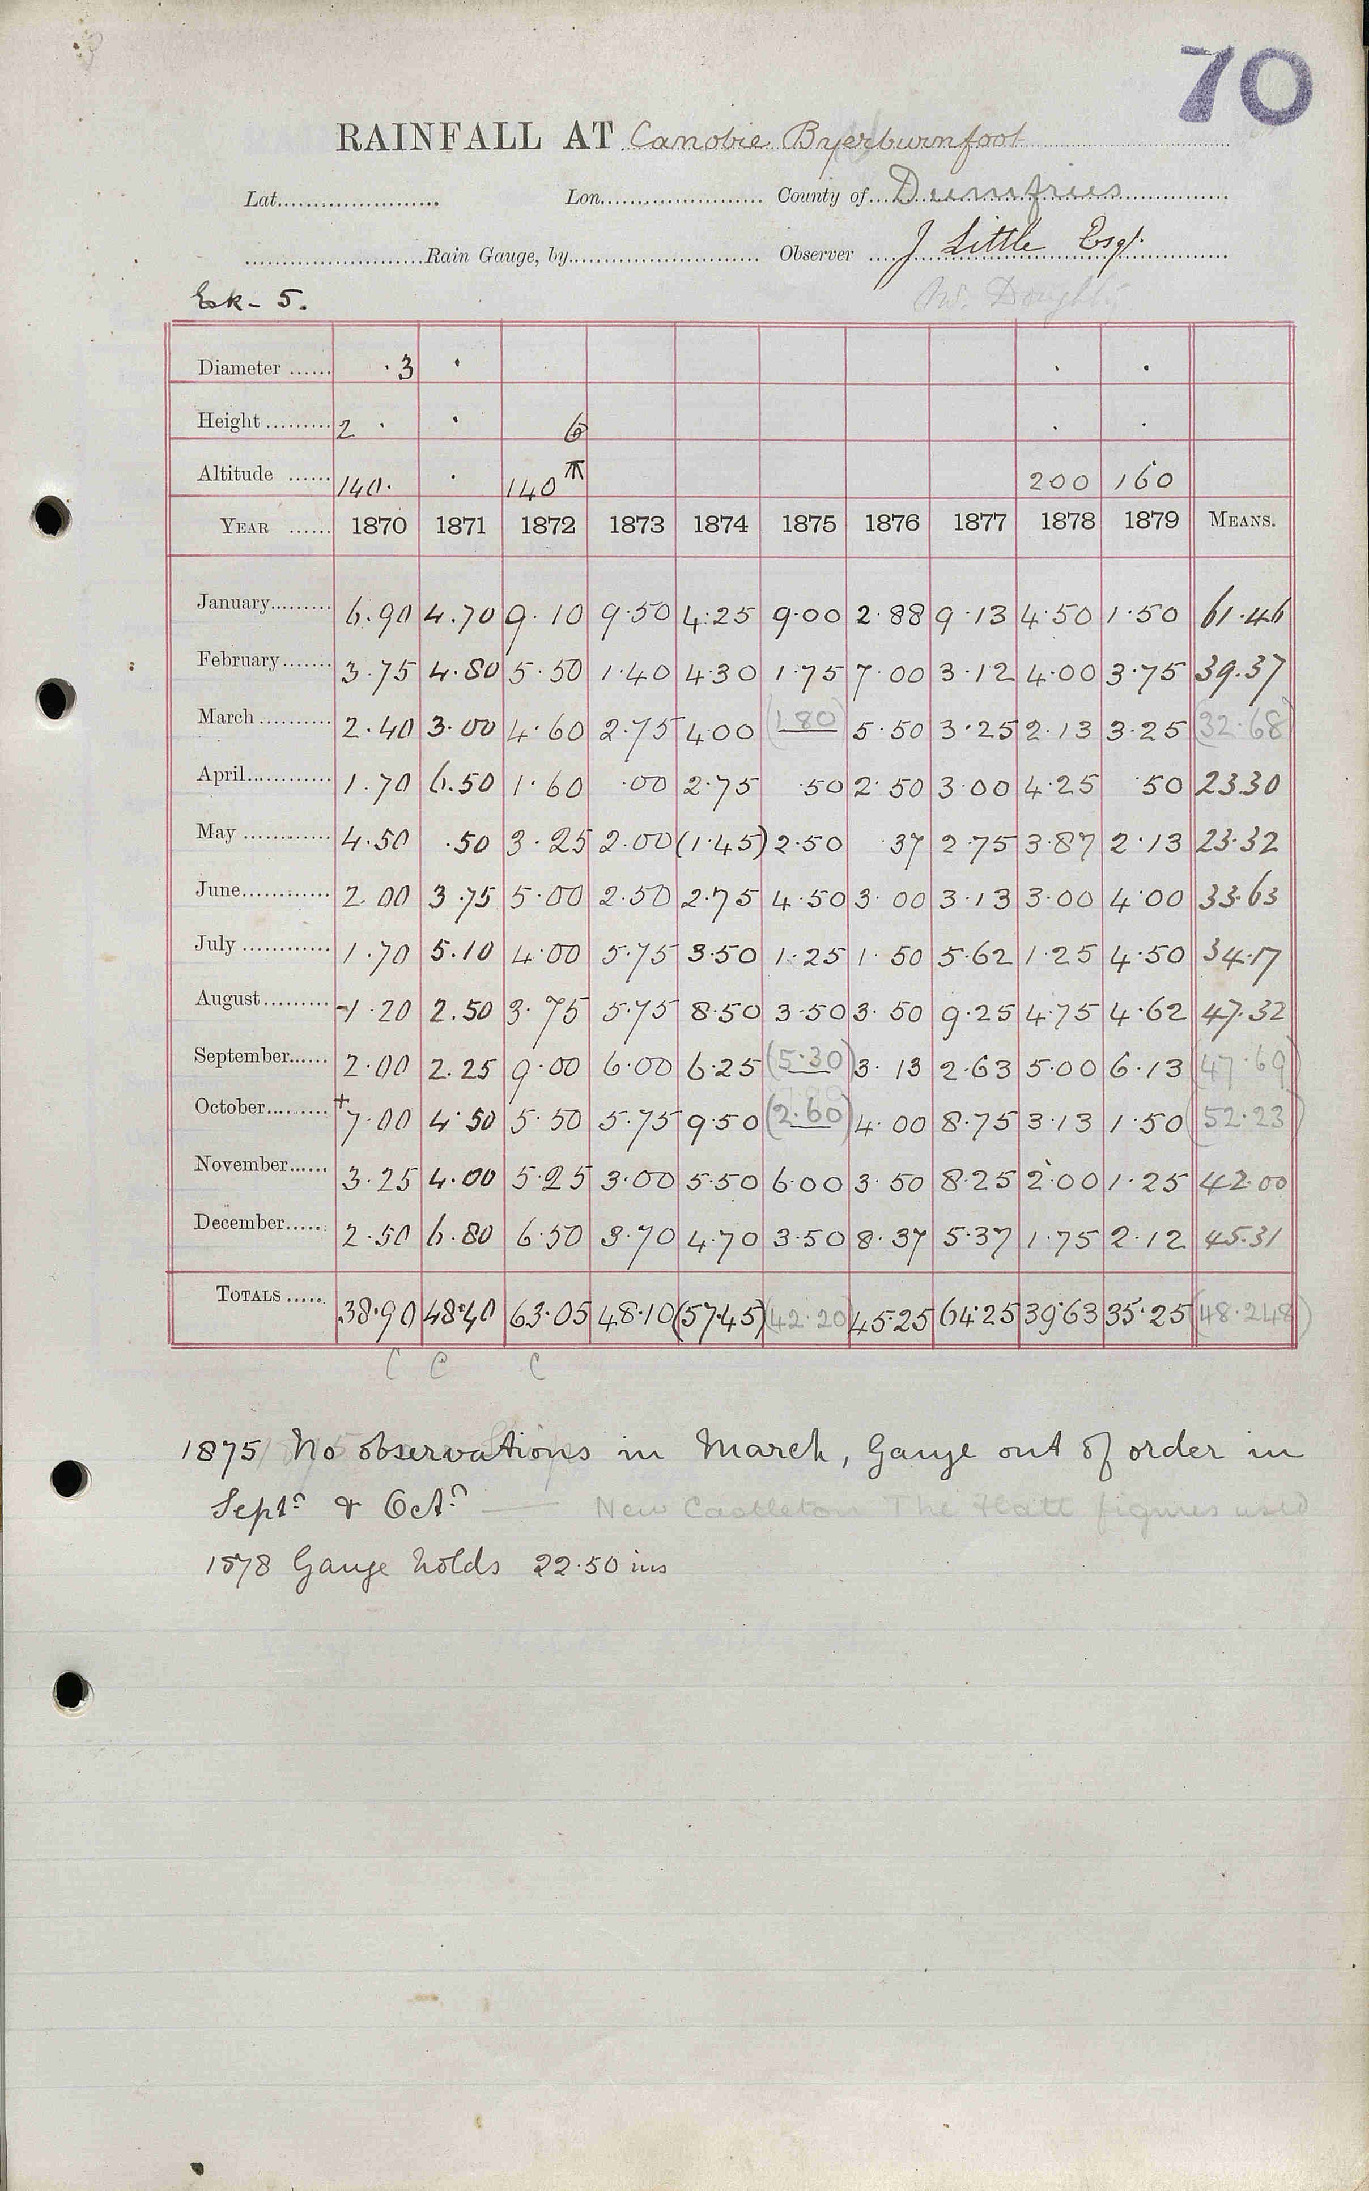 70
RAINFALL AT Canobie Byerburnfoot
Lat. Lon. County of Dumfries
Rain Gauge, by Observer J Little Esqr.
Esk - 5. W. Doughty
Diameter ...... ·3 ·  · ·
Height ......... 2 · · 6 · ·
Altitude ...... 140. · 140 200 160
YEAR ...... 1870 1871 1872 1873 1874 1875 1876 1877 1878 1879 MEANS.
January......... 6.90 4.70 9.10 9.50 4.25 9.00 2.88 9.13 4.50 1.50 61.46
February....... 3.75 4.80 5.50 1.40 4.30 1.75 7.00 3.12 4.00 3.75 39.37
March .......... 2.40 3.00 4.60 2.75 4.00 (1.80) 5.50 3.25 2.13 3.25 (32.68)
April............ 1.70 6.50 1.60 .00 2.75 .50 2.50 3.00 4.25 50 23.30
May ............. 4.50 .50 3.25 2.00 (1.45) 2.50 37 2.75 3.87 2.13 23.32
June............. 2.00 3.75 5.00 2.50 2.75 4.50 3.00 3.13 3.00 4.00 33.63
July ............. 1.70 5.10 4.00 5.75 3.50 1.25 1.50 5.62 1.25 4.50 34.17
August.......... -1.20 2.50 3.75 5.75 8.50 3.50 3.50 9.25 4.75 4.62 47.32
September...... 2.00 2.25 9.00 6.00 6.25 (5.30) 3.13 2.63 5.00 6.13 (47.69)
October......... +7.00 4.50 5.50 5.75 9.50 (2.60) 4.00 8.75 3.13 1.50 (52.23)
November...... 3.25 4.00 5.25 3.00 5.50 6.00 3.50 8.25 2.00 1.25 42.00
December...... 2.50 6.80 6.50 3.70 4.70 3.50 8.37 5.37 1.75 2.12 45.31
TOTALS ...... 38.90 48.40 63.05 48.10 (57.45) (42.20) 45.25 64.25 39.63 35.25 (48.248)
C C C
1875 No observations in March, Gauge out of order in
Septr & Octr — New Castleton The Flatt figures used
1878 Gauge holds 22.50 ins